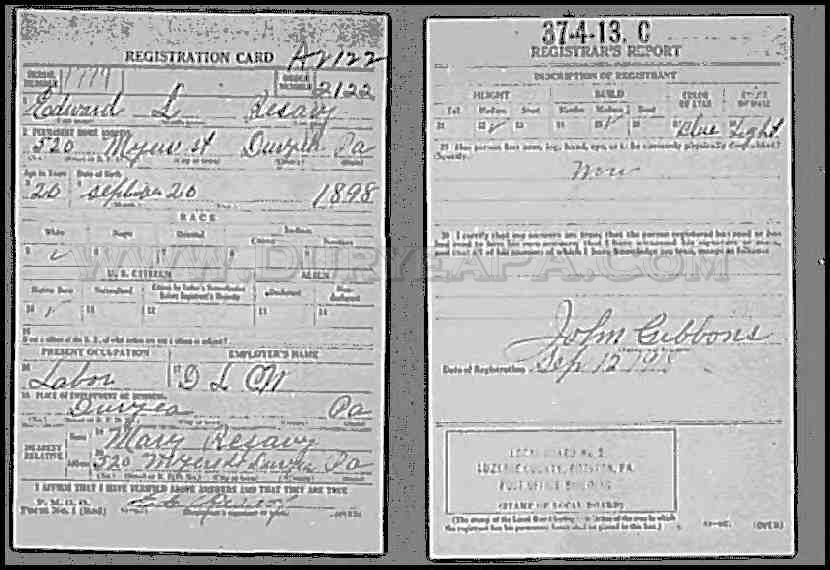 REGISTRATION CARD A2122
SERIAL NUMBER 1777 ORDER NUMBER 2122
1 Edward L Resavy
2 PERMANENT HOME ADDRESS
520 Duryea Pa
Age in Years Date of Birth
20 September 20 1898
RACE
White Negro Oriental Indian
Citizen
5 6 7 8 9
WWW.DURYEAPA.COM
U. S. CITIZEN ALIEN
Native Born Naturalized Citizen by Father's Naturalization Before Registrant's Majority Declarant Non-declarant
10 11 12 13 14
15
If not a citizen of the U. S., of what nation are you a citizen or subject?
PRESENT OCCUPATION EMPLOYER'S NAME
16 Labor 17 D L
18 PLACE OF EMPLOYMENT OR BUSINESS
Duryea Pa
NEAREST RELATIVE
Name 19 Mary Resavy
Address 20 520 Duryea Pa
I AFFIRM THAT I HAVE VERIFIED ABOVE ANSWERS AND THAT THEY ARE TRUE
P. M. G. O.
Form No. 1 (Red) (Registrant's signature or mark) (OVER)
37-4-13. C
REGISTRAR'S REPORT
DESCRIPTION OF REGISTRANT
HEIGHT BUILD COLOR OF EYES COLOR OF HAIR
Tall Medium Short Slender Medium Stout
21 22 23 Blue Light
29 Has person lost arm, leg, hand, eye, or is he obviously physically disqualified?
(Specify.)
30 I certify that my answers are true; that the person registered has read or has
had read to him his own answers; that I have witnessed his signature or mark,
and that all of his answers of which I have knowledge are true, except as follows:
John Gibbons
Date of Registration Sep 12
LOCAL BOARD No. 2
LUZERNE COUNTY, PITTSTON, PA.
POST OFFICE BUILDING
(STAMP OF LOCAL BOARD)
(The stamp of the Local Board having jurisdiction of the area in which
the registrant has his permanent home shall be placed in this box.) (OVER)